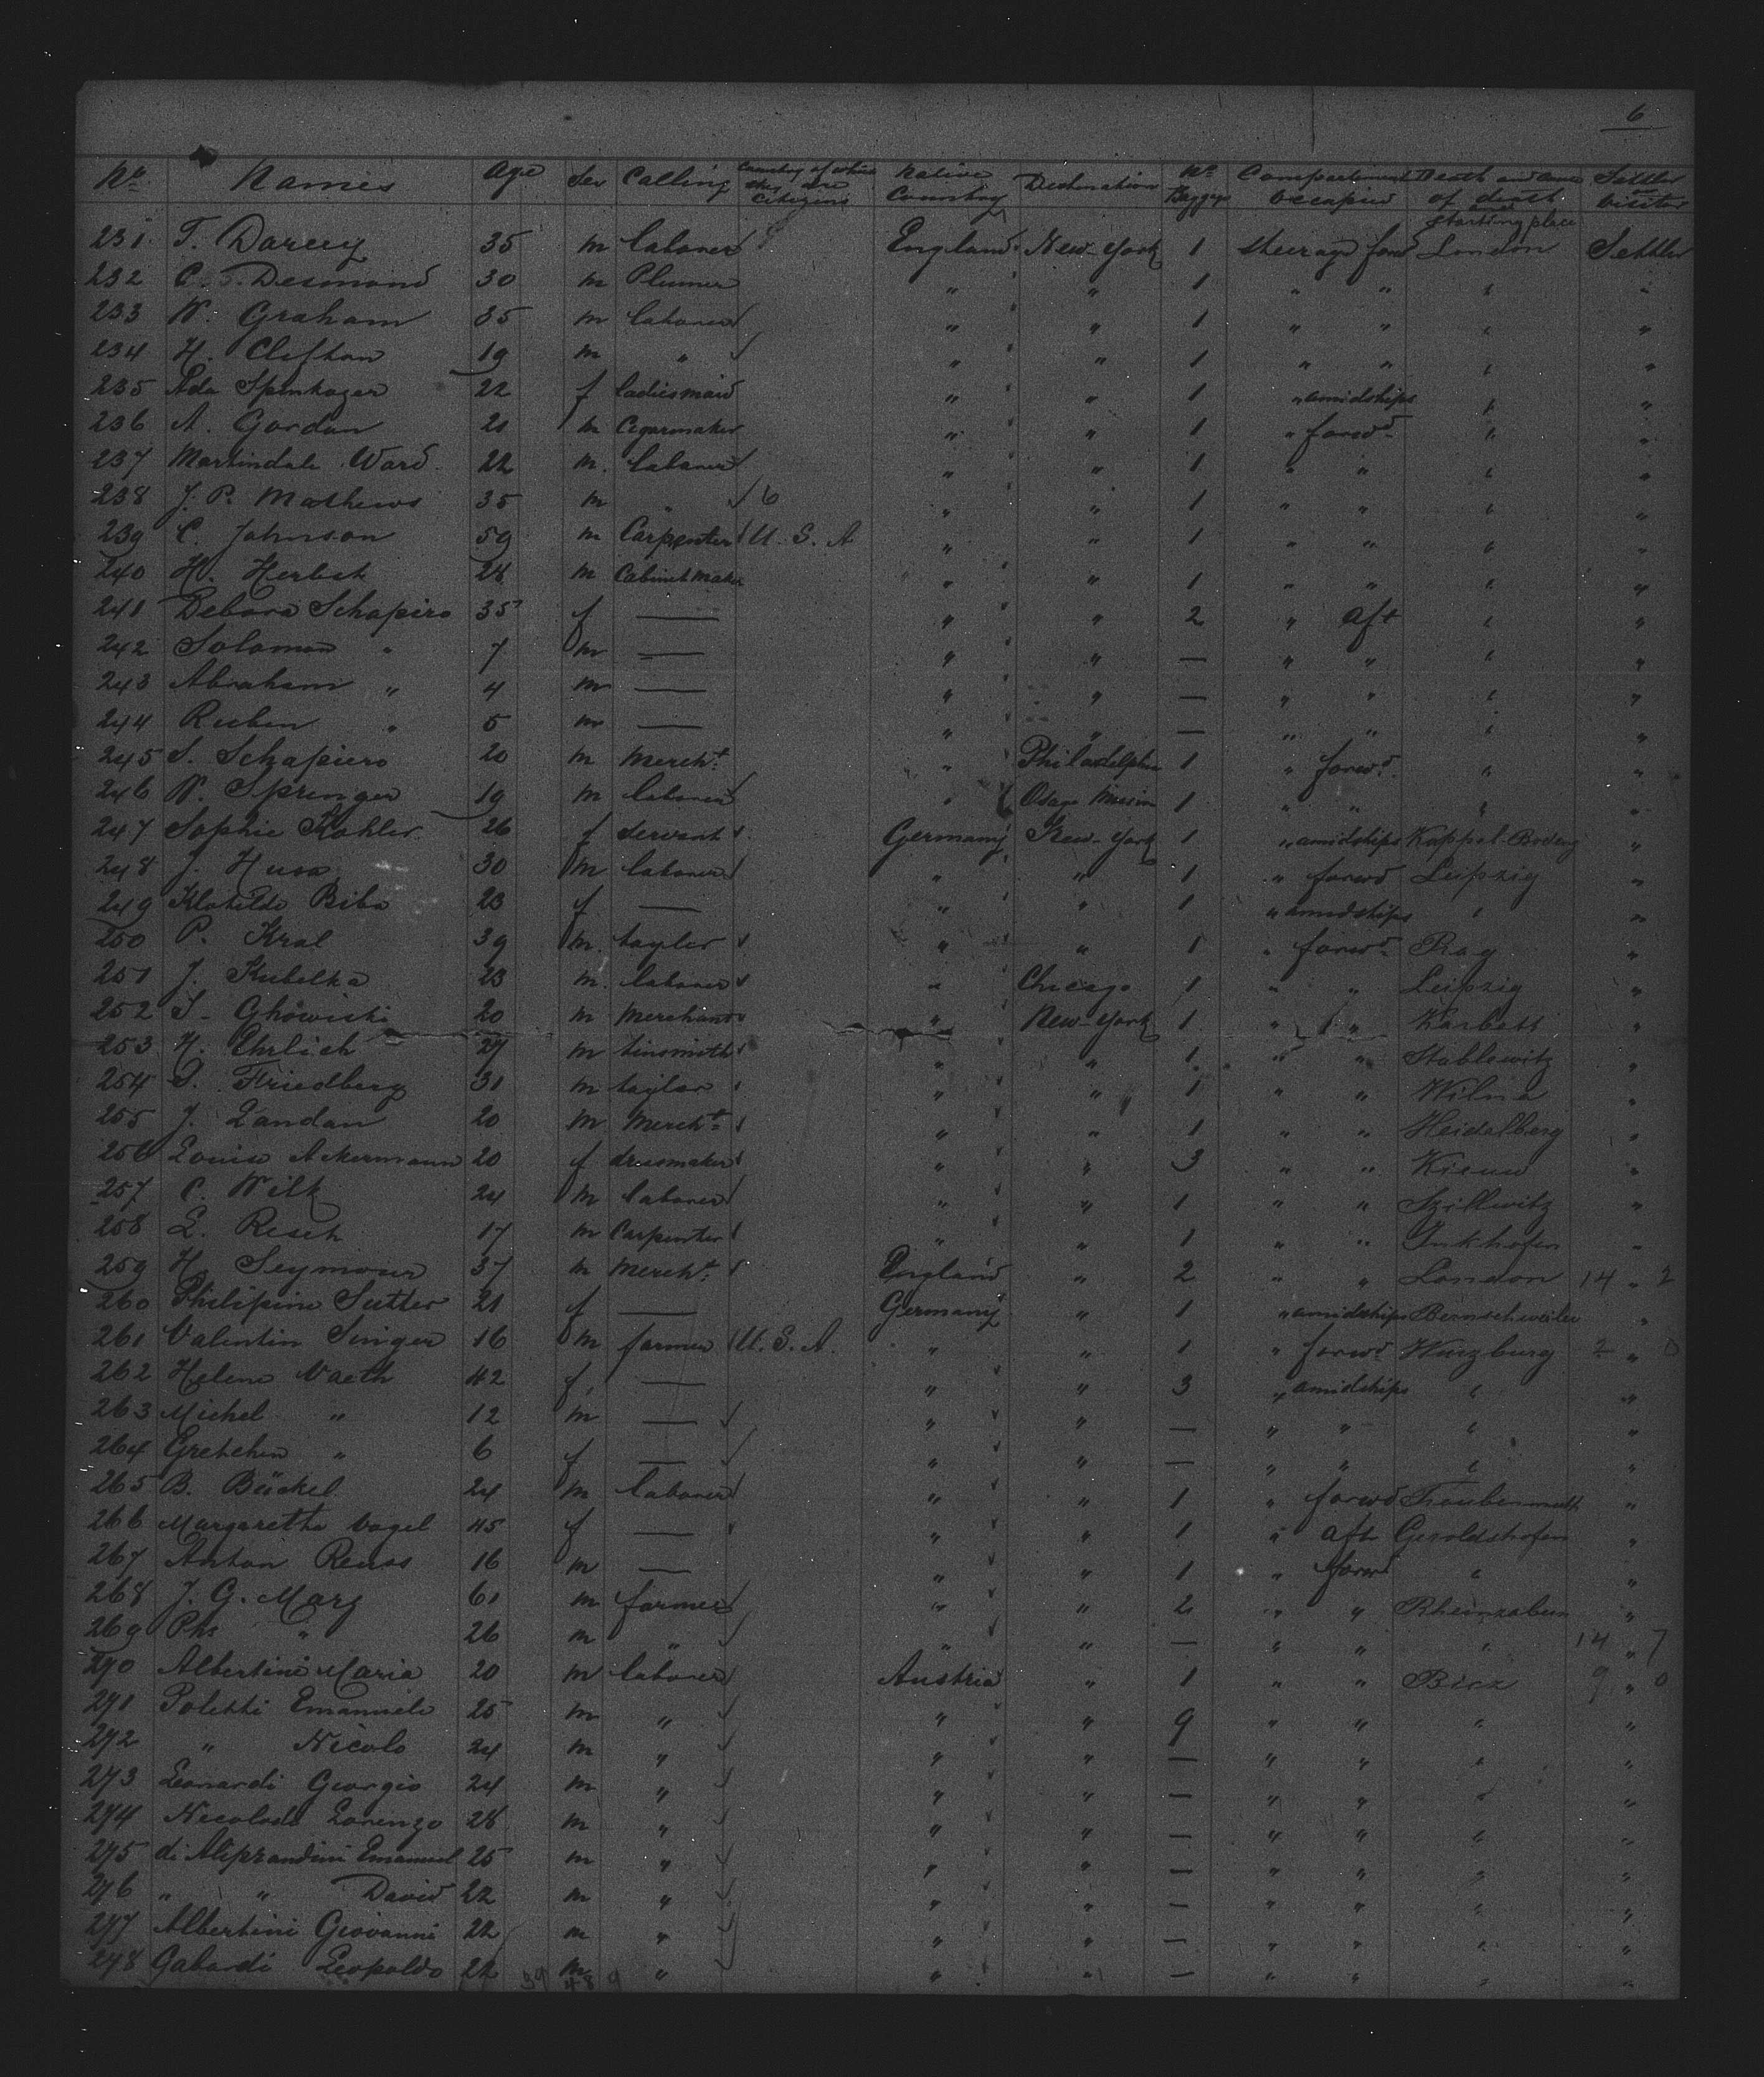 6
No. Names Age Sex Calling Country of which they are Citizens Native Country Destination No. Baggage Compartment occupied Death and cause of death and starting place Settler or Visitor
231 T. Darcey 35 m laborer England New-York 1 steerage forwd London Settler
232 C. T. Desmond 30 m Plumer " " 1 " " " "
233 W. Graham 35 m laborer " " 1 " " " "
234 H. Clifton 19 m " " " 1 " " " "
235 Ada 22 f ladiesmaid " " 1 " amidships " "
236 A. Gordon 21 m Cigarmaker " " 1 " forwd " "
237 Martindale Ward 22 m. laborer " " 1 " " " "
238 J. P. Mathews 35 m " 6 " " 1 " " " "
239 C. Johnson 59 m Carpenter U. S. A " " 1 " " " "
240 H. Herbst 28 m Cabinetmaker " " 1 " " " "
241 Debora Schapiro 35 f — " " 2 " aft " "
242 Solomon " 7 m — " " — " " " "
243 Abraham " 4 m — " " — " " " "
244 Ruben " 5 m — " " — " " " "
245 S. Schapiero 20 m Mercht. " Philadelphia 1 " forwd. " "
246 W. Springer 19 m laborer " Osage 1 " " " "
247 Sophie Kohler 26 f servant Germany New-York 1 " amidships Kappel "
248 J. Husa 30 m laborer " " 1 " forwd Leipzig "
249 Klotilde Biba 23 f — " " 1 " amidships " "
250 P. Kral 39 m. taylor " " 1 " forwd Prag "
251 J. Kubelka 23 m. laborer " Chicago 1 " " Leipzig "
252 S. 20 m Merchant " New-York 1 " " "
253 H. Ehrlich 27 m tinsmith " " 1 " " Stablowitz "
254 S. Friedberg 31 m taylor " " 1 " " Wilna "
255 J. Landau 20 m Mercht. " " 1 " " Heidelberg "
256 Louise Ackermann 20 f dressmaker " " 3 " " "
257 C. Wilk 24 m laborer " " 1 " " "
258 L. Resch 17 m Carpenter " " 1 " " Inkhofen "
259 H. Seymour 37 m Mercht. England " 2 " " London 14 " 2
260 Philipine Sutter 21 f — Germany " 1 " amidships "
261 Valentin Singer 16 m farmer U. S. A. " " 1 " forwd Wurzburg 2 " 0
262 Helene Vaeth 42 f. — " " 3 " amidships " "
263 Michel " 12 m — " " — " " " "
264 Gretchen " 6 f — " " — " " " "
265 B. Bäckel 24 m laborer " " 1 " forwd "
266 Margaretha Vogel 45 f — " " 1 " aft Geroldshofen "
267 Anton Reuss 16 m — " " 1 " forwd " "
268 J. G. Marz 61 m farmer " " 2 " " Rheinzabern "
269 Phs " 26 m " " " — " " " 14 " 7
270 Albertini Maria 20 m laborer Austria " 1 " " 9 " 0
271 Poletti Emanuele 25 m " " " 9 " " " "
272 " Nicolo 24 m " " " — " " " "
273 Leonardi Georgio 24 m " " " — " " " "
274 Nicolodi Lorenzo 28 m " " " — " " " "
275 di Aliprandini Emanuel 25 m " " " — " " " "
276 " " David 22 m " " " — " " " "
277 Albertini Giovanni 22 m " " " — " " " "
278 Gabardi Leopoldo 22 m " " " — " " " "
39 48 9